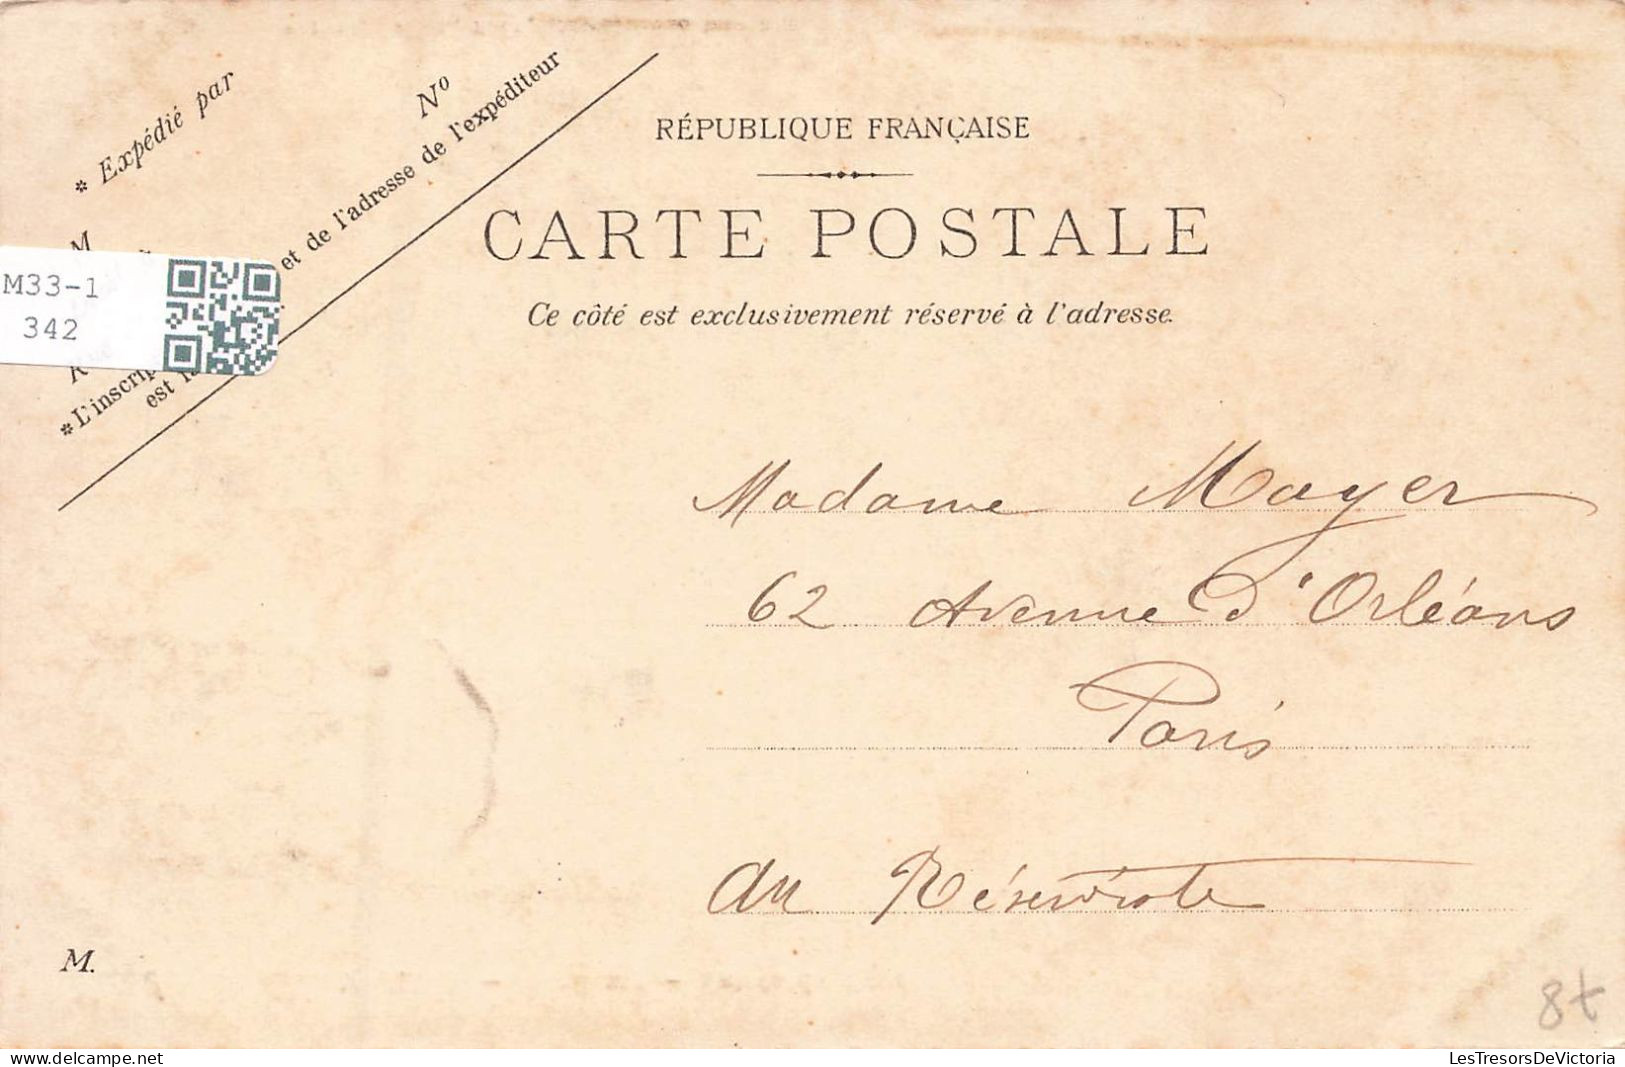 * Expédié par
Nº
M
* L'inscrip
et de l'adresse de l'expéditeur
est
M33-1
342
RÉPUBLIQUE FRANÇAISE
CARTE POSTALE
Ce côté est exclusivement réservé à l'adresse.
Madame Mayer
62 Avenue d'Orléans
Paris
au
M.
8t
LesTresorsDeVictoria